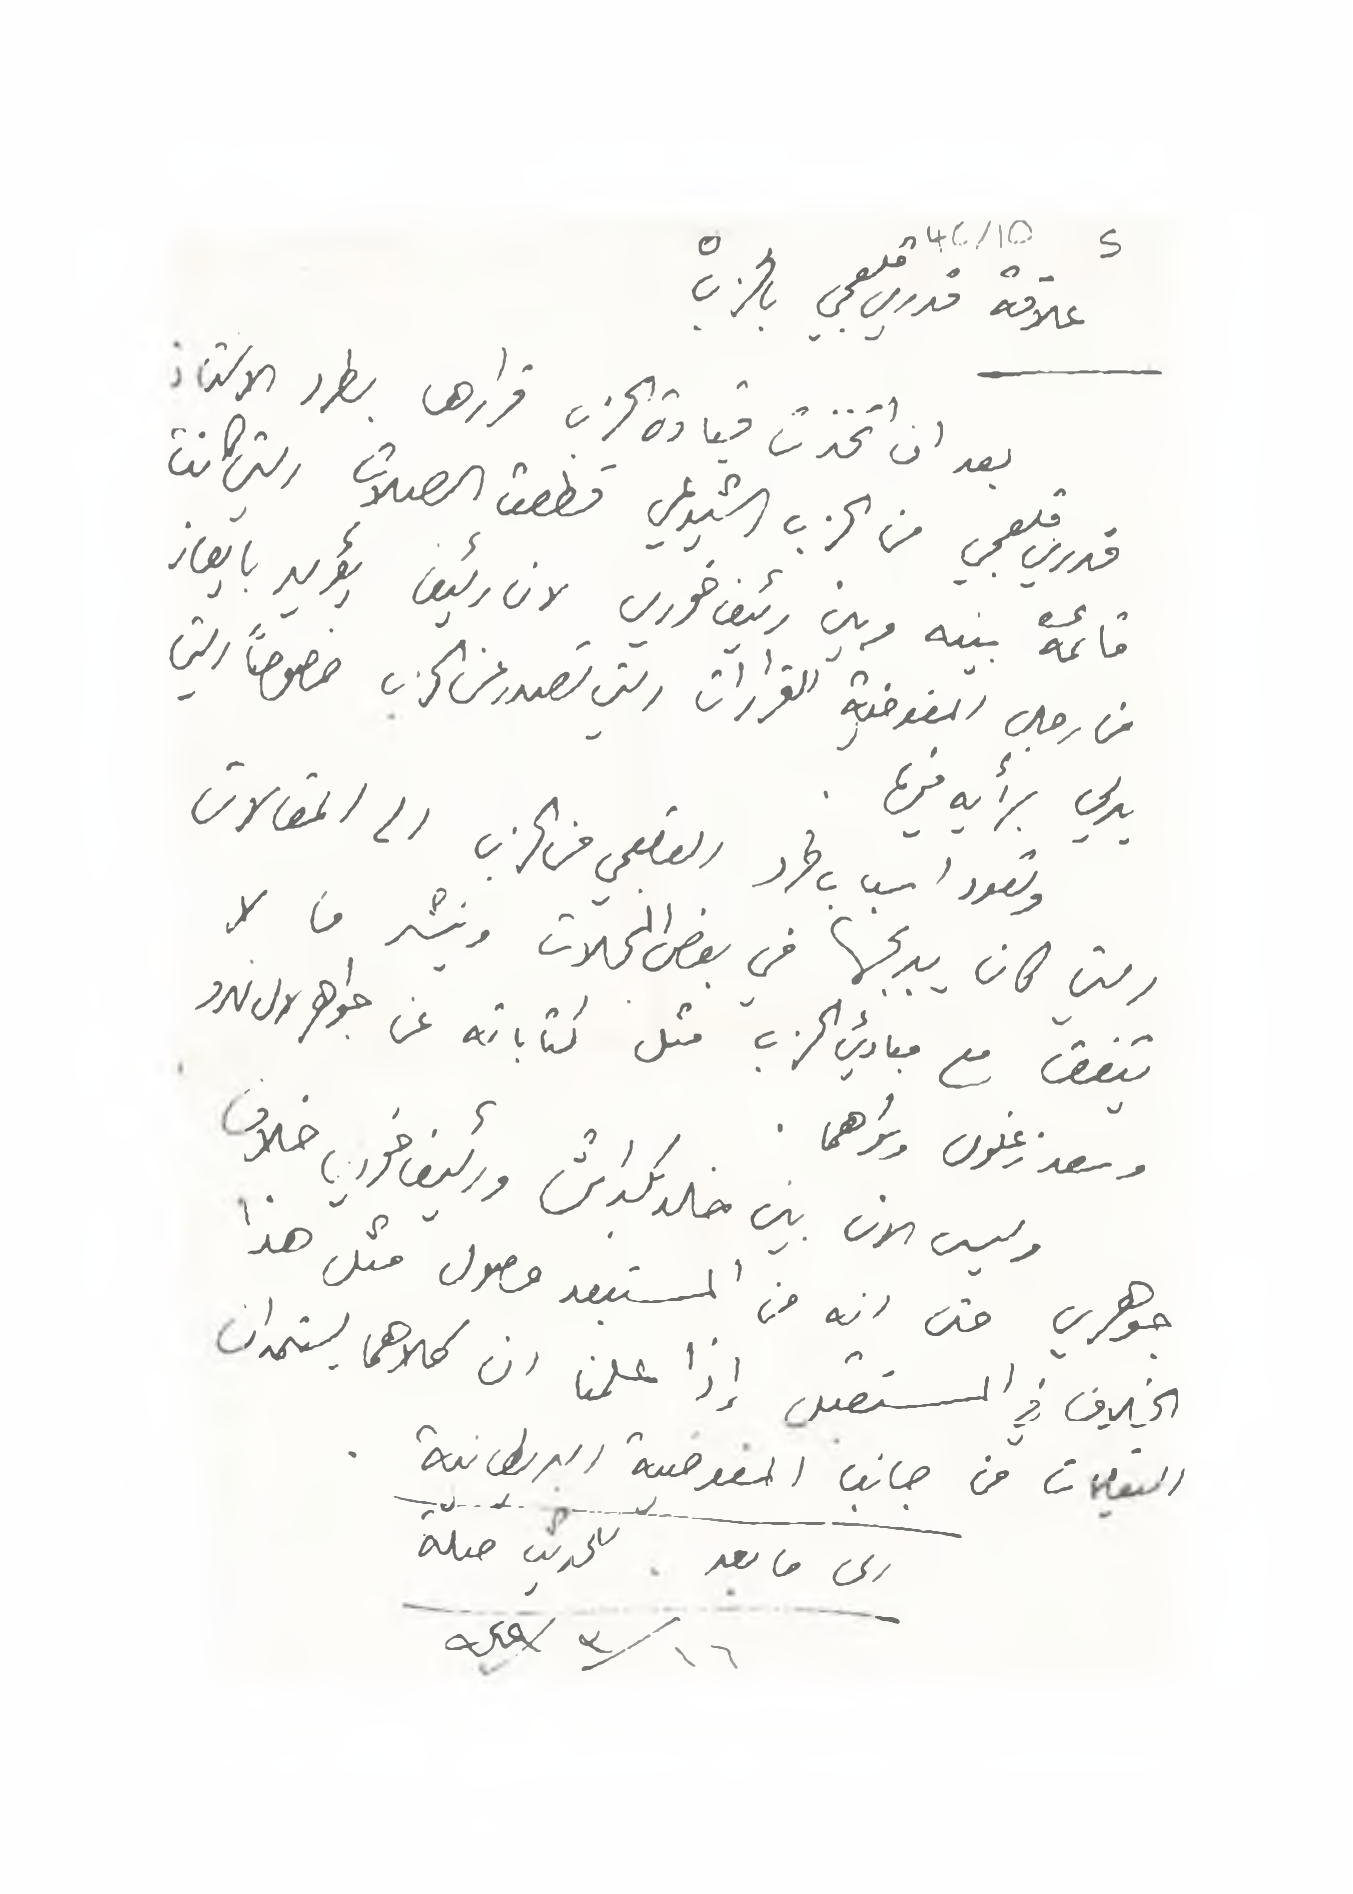 S 46/10
علاقة قدري قلعجي بالحزب
بعد ان اتخذت قيادة الحزب قرارها بطرد الاستاذ
قدري قلعجي من الحزب الشيوعي قطعت الصلات التي كانت
قائمة بينه وبين رئيف خوري لان رئيف يؤيد بايعاز
من رجال المفوضية القرارات التي تصدر عن الحزب خصوصاً التي
يدلي برأيه فيها .
وتعود اسباب طرد القلعجي من الحزب الى المقالات
التي كان يدبجها في بعض المجلات وينشر ما لا
يتفق مع مبادئ الحزب مثل كتاباته عن جواهر لال نهرو
وسعد زغلول وسواهما .
وليس الان بين خالد بكداش ورئيف خوري خلاف
جوهري حتى انه من المستبعد حصول مثل هذا
الخلاف في المستقبل إذا علمنا ان كلاهما يستمدان
التعليمات من جانب المفوضية البريطانية .
الى ما بعد . للحديث صلة
١٦/٣